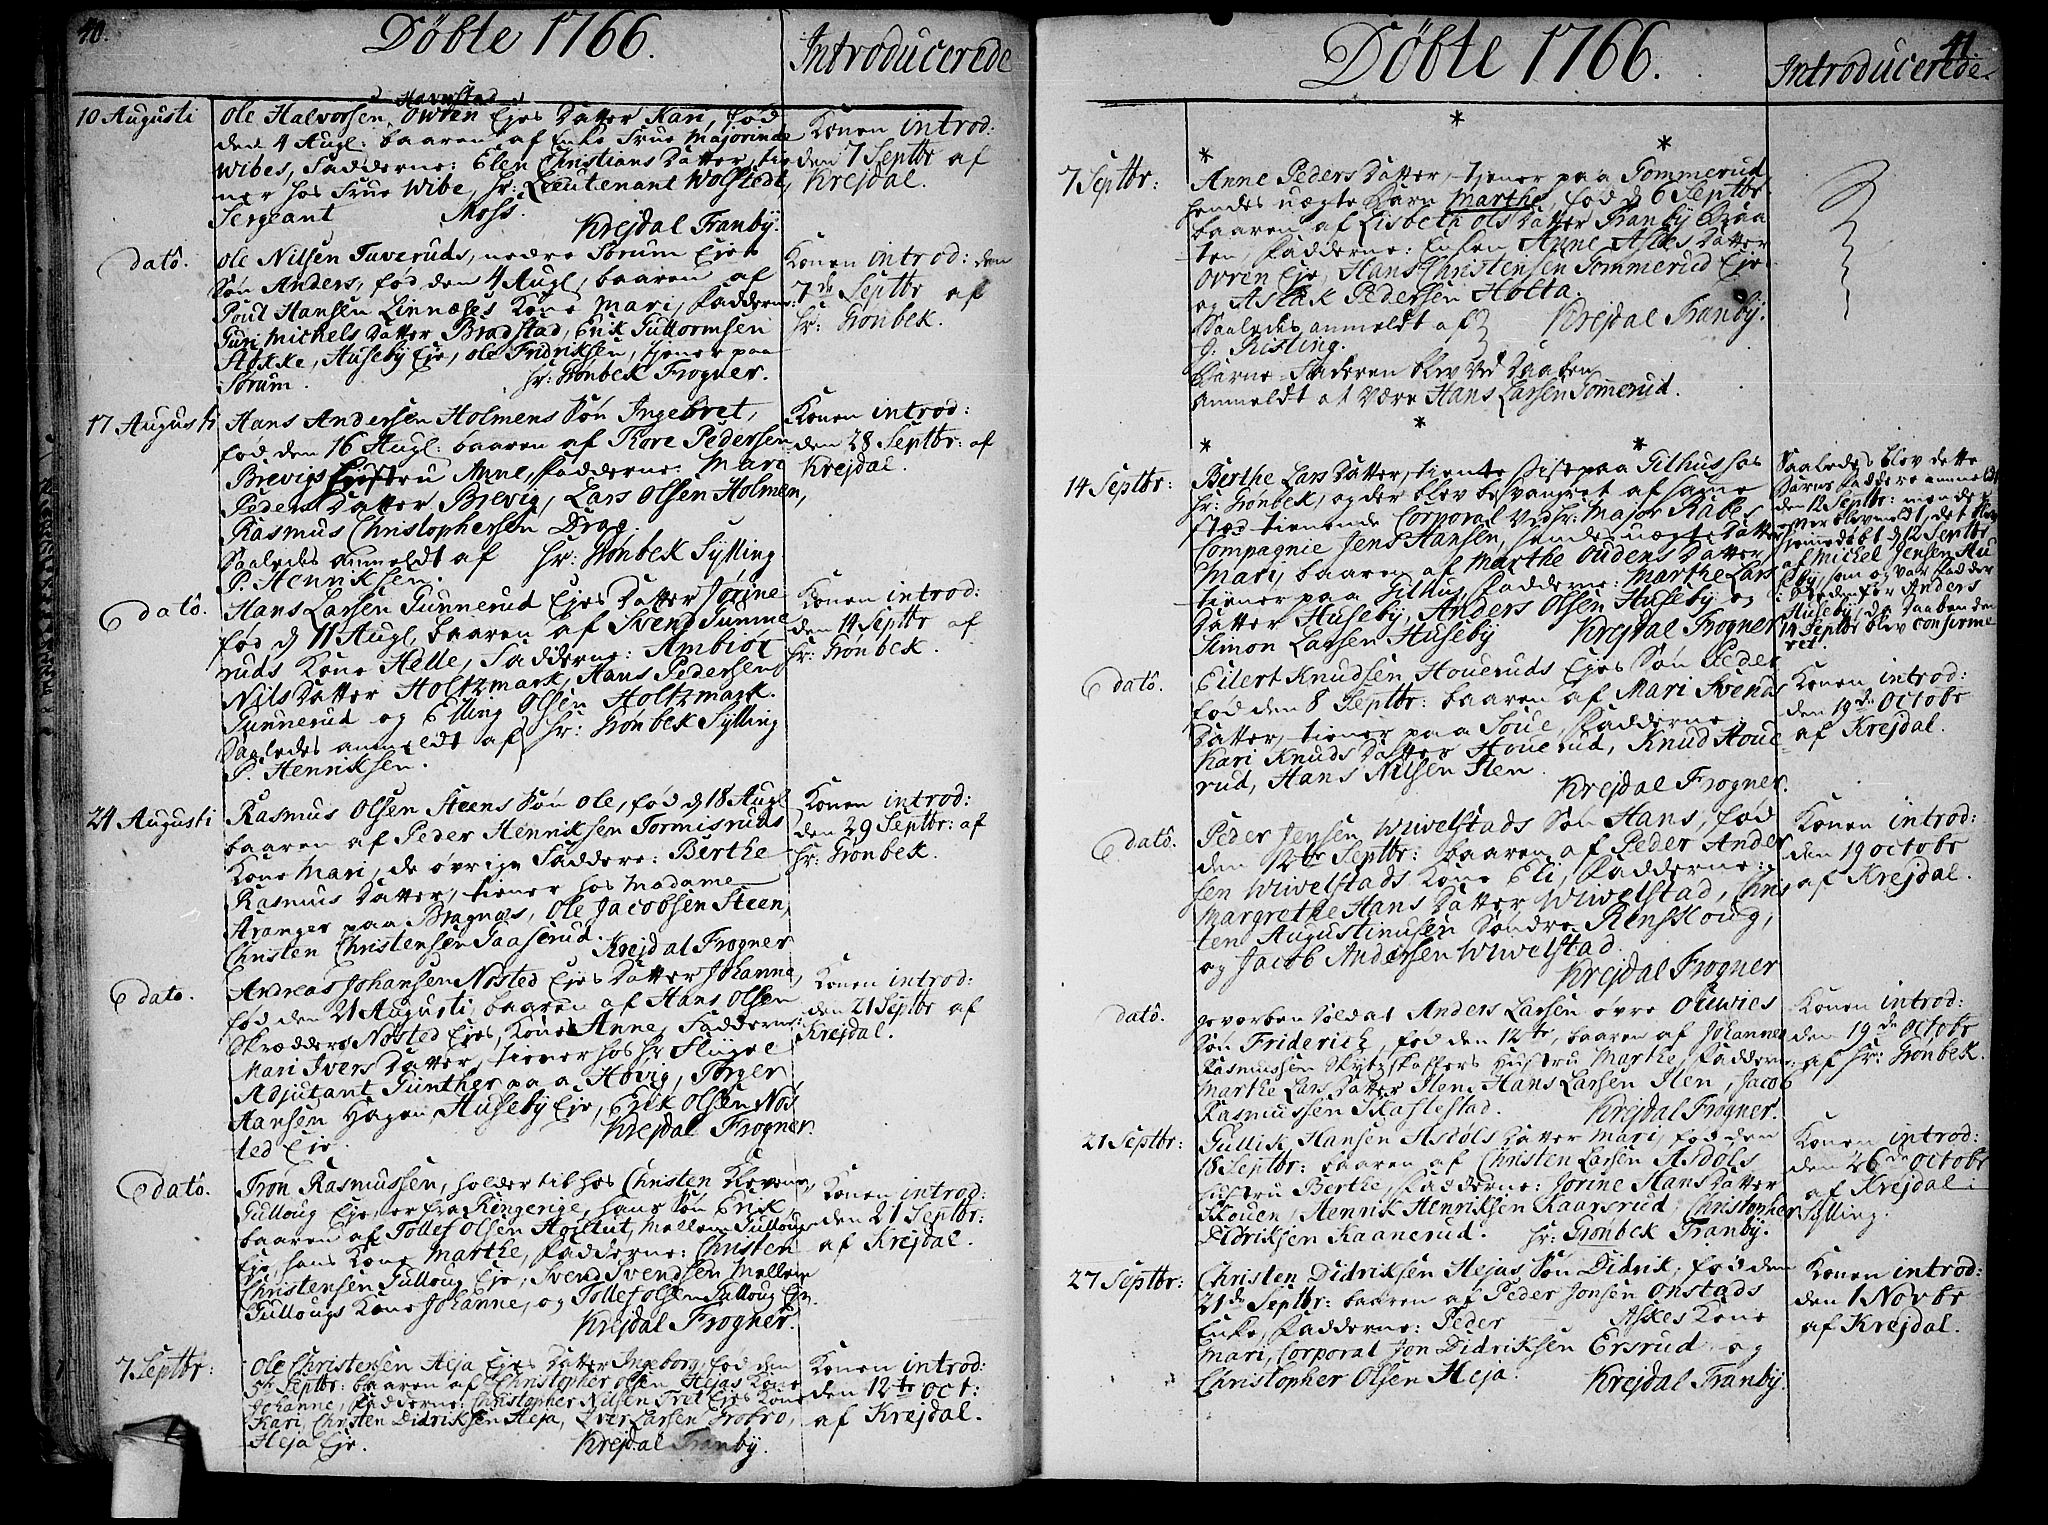 40.
Döbte 1766.
Introducerede
10 Augusti
Havnstad
Ole Halvorsen, Owren Ejes Datter Kari, fød
den 4 Augl: baaren af Enke Frue Majorinde
Wibes, Fadderne: Elen Christians Datter, tie
ner hos Frue Wibe, hr: Lieutenant Wolstedt,
Sergeant Moss.
Krejdal Tranby.
Konen introd:
den 7 Septbr af
Krejdal.
Datô.
Ole Nilsen Tuveruds, nedre Sørum Ejes
Søn Anders, fød den 4 Augl, baaren af
Poul Hansen Linnæses Kone Mari, Fadderne:
Guri Michels Datter Bradstad, Erik Guttormsen
Støkke, Huseby Eje, Ole Fridriksen, tjener paa
Sørum. hr: Grönbek Frogner.
Konen introd: den
7de Septbr af
hr: Grönbek.
17 Augusti
Hans Andersen Holmens Søn Ingebret,
fød den 16 Augl: baaren af Thore Pedersen
Brevigs Hustru Anne, Fadderne: Mari
Peders Datter Brevig, Lars Olsen Holmen,
Rasmus Christophersen Drag.
Saaledes anmeldt af hr: Grönbek Sylling
P. Henriksen.
Konen introd:
den 28 Septbr: af
Krejdal.
E dato.
Hans Larsen Gunnerud Ejes Datter Jörine
fød d 11 Augl, baaren af Svend Gunne
ruds Kone Helle, Fadderne: Ambiör
Nils Datter Holtzmark, Hans Pedersen
Gunnerud og Elling Olsen Holtzmark.
Saaledes anmeldt af hr: Grönbek Sylling
P. Henriksen.
Konen introd:
den 14 Septbr af
hr: Grönbek.
24 Augusti
Rasmus Olsen Steens Søn Ole, fød d 18 Augl
baaren af Peder Henriksen Tormisruds
Kone Mari, de øvrige Faddere: Berthe
Rasmus Datter, tiener hos Madame
Stranger paa Bragnæs, Ole Jacobsen Steen,
Christen Christensen Gaaserud.
Krejdal Frogner
Konen introd:
den 29 Septbr: af
hr: Grönbek.
E dato.
Andreas Johansen Nøsted Ejes Datter Johanne,
fød den 21 Augusti, baaren af Hans Olsen
Skrædders Nøsted Ejes, Kone Anne, Fadderne:
Mari Ivers Datter, tiener hos hr Flügel
Adjutant Günther paa Høvig, Törger
Hansen Hagen, Huseby Eje, Erik Olsen Nøs
ted Eje. Krejdal Frogner.
Konen introd:
den 21 Septbr af
Krejdal.
E datô.
Tron Rasmussen, holder til hos Christen Klevene,
Gulloug Eje, er fra Ringerige, hans Søn Erik,
baaren af Tollef Olsen Hoiltut, Mellem Gulloug
Eje, hans Kone Marthe, Fadderne: Christen
Christensen Gulloug Eje, Svend Svendsen Mellem
Gullougs Kone Johanne, og Tollef Olsen Gulloug Eje.
Krejdal Frogner.
Konen introd:
den 21 Septbr:
af Krejdal.
7 Septbr:
Ole Christensen Heja Ejes Datter Ingeborg, fød den
5te Septbr: baaren af Christopher Olsen Hejas Kone
Johanne, Fadderne: Christopher Nilsen Tret Ejes Kone
Kari, Christen Didriksen Heja, Iver Larsen Brobro,
Heja Eje. Krejdal Tranby.
Konen introd:
den 12te Oct:
af Krejdal.
41.
Döbte 1766.
Introducerede.
7 Septbr:
Anne Peders Datter, tjener paa Gommerud,
hendes uægte Barn Marthe, fød d 6 Septbr
baaren af Lisbeth Ols Datter Tranby Braa
ten, Fadderne: Enken Anne Asles Datter
Ovren Eje, Hans Christensen Gommerud Eje
og Aslak Pedersen Holta.
Saaledes anmeldt af Krejdal Tranby.
J. Risting.
Barne-Faderen blev ved Daaben
anmeldt at være Hans Larsen Gomerud.
14 Septbr:
Berthe Lars Datter, tiente sist paa Gilhus hos
hr: Grönbek, og der blev besvangret af samme
sted tienende Corporal ved hr: Major Rabes
Compagnie Jens Hansen, hendes uægte Datter
Mari, baaren af Marthe Oudens Datter
tiener paa Gilhus, Fadderne: Marthe Lars
Datter Huseby, Anders Olsen Huseby og
Simon Larsen Huseby Krejdal Frogner
Saaledes blev dette
Barns Faddere anmeldt
den 12 Septbr: men der
efter blev meldt, det blev
hjemmedøbt d 12 Septbr
af Michel Jensen Hu
seby, som og var Fadder
i steden for Anders
Huseby, da Daaben den
14 Septbr blev confirme
ret.
E datô.
Eilert Knudsen Houeruds Ejes Søn Peder
fød den 8 Septbr: baaren af Mari Svends
Datter, tiener paa Soue, Fadderne:
Kari Knuds Datter Houerud, Knud Houe
rud, Hans Nilsen Ilen.
Krejdal Frogner.
Konen introd:
den 19de Octobr
af Krejdal.
E datô.
Peder Jensen Wivelstads Søn Hans, fød
den 12te Septbr: baaren af Peder Ander
sen Wivelstads Kone Eli, Fadderne:
Margrethe Hans Datter Wivelstad, Chris
ten Augustinusen Søndre Renskoug,
og Jacob Andersen Wivelstad.
Krejdal Frogner
Konen introd:
den 19 Octobr
af Krejdal.
datô.
gevorben Soldat Anders Larsen øvre Ouwies
Søn Friderich, fød den 12te, baaren af Johannes
Rasmussen Skytzskaffers Hustru Marthe, Fadderne:
Marthe Lars Datter Ilen, Hans Larsen Ilen, Jacob
Rasmussen Skaftestad. Krejdal Frogner.
Konen introd:
den 19de Octobr
af hr: Grönbek.
21 Septbr:
Gullik Hansen Asdöls Datter Mari, fød den
18 Septbr: baaren af Christen Larsen Asdöls
Hustru Berthe, Fadderne: Jörine Hans Datter
Skouen, Henrik Henriksen Kaarsrud, Christopher
Didriksen Kaanerud. hr: Grönbek Tranby.
Konen introd:
den 26de Octobr
af Krejdal:
Sylling.
27 Septbr:
Christen Didriksen Hejas Søn Didrik, fød den
21de Septbr: baaren af Peder Jonsen Onstads
Enke, Fadderne: Peder Askes Kone
Mari, Corporal Jon Didriksen Ersrud og
Christopher Olsen Heja. Krejdal Tranby.
Konen introd:
den 1 Novbr
af Krejdal.